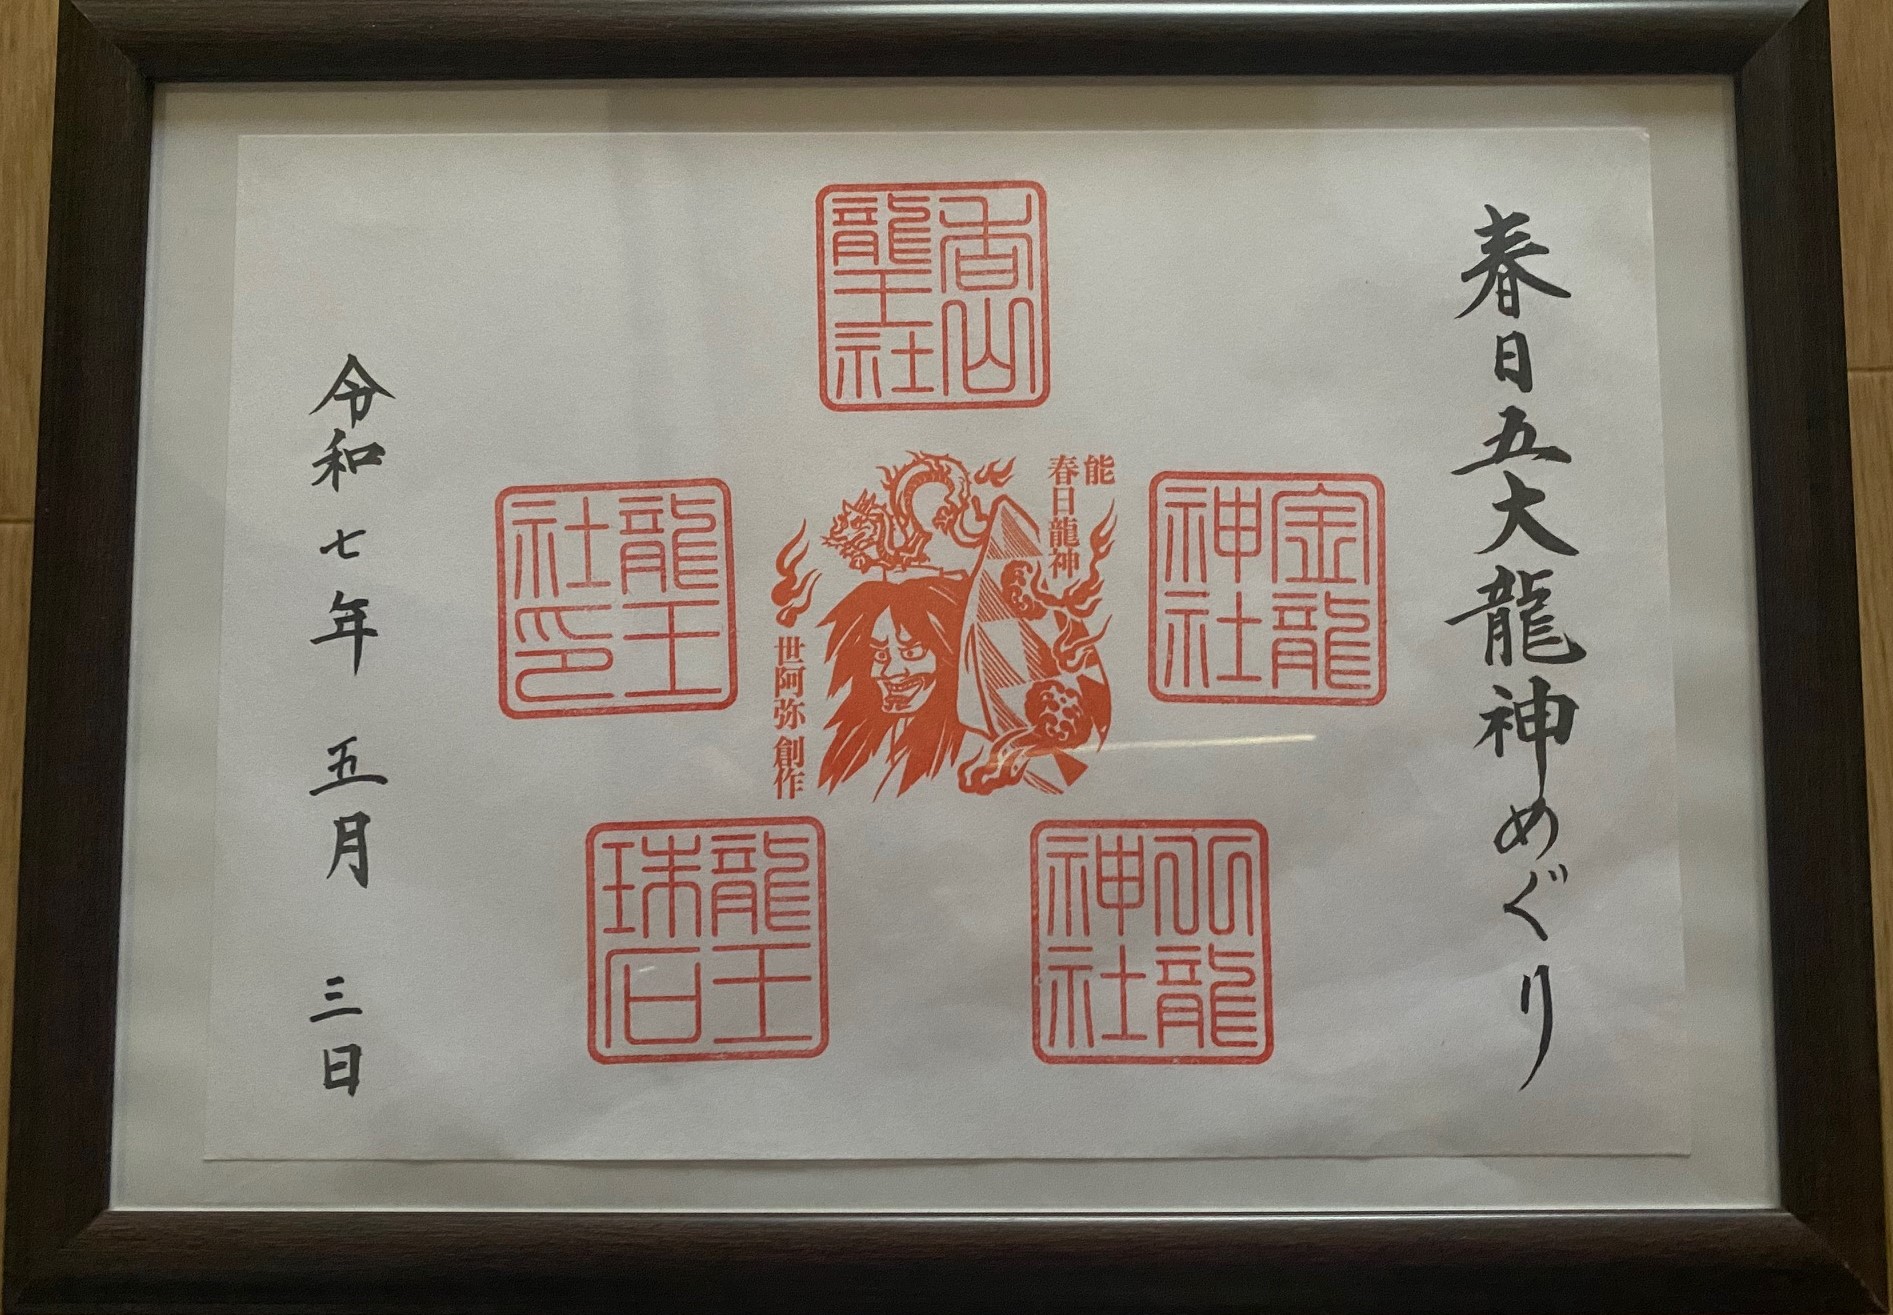 春日五大龍神めぐり
香山
龍王社
金龍
神社
能
春日龍神
世阿弥 創作
龍王
社印
龍
神社
龍王
珠石
令和七年 五月 三日